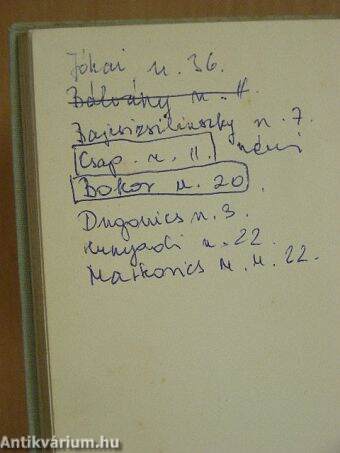 Jókai u. 36.
Bálvány u. 11.
Bajcsizsilinszky u. 7.
Csap. u. 11. néni
Bokor u. 20.
Dugonics u. 3.
Hunyadi u. 22.
Markovics u. 22.
Antikvárium.hu